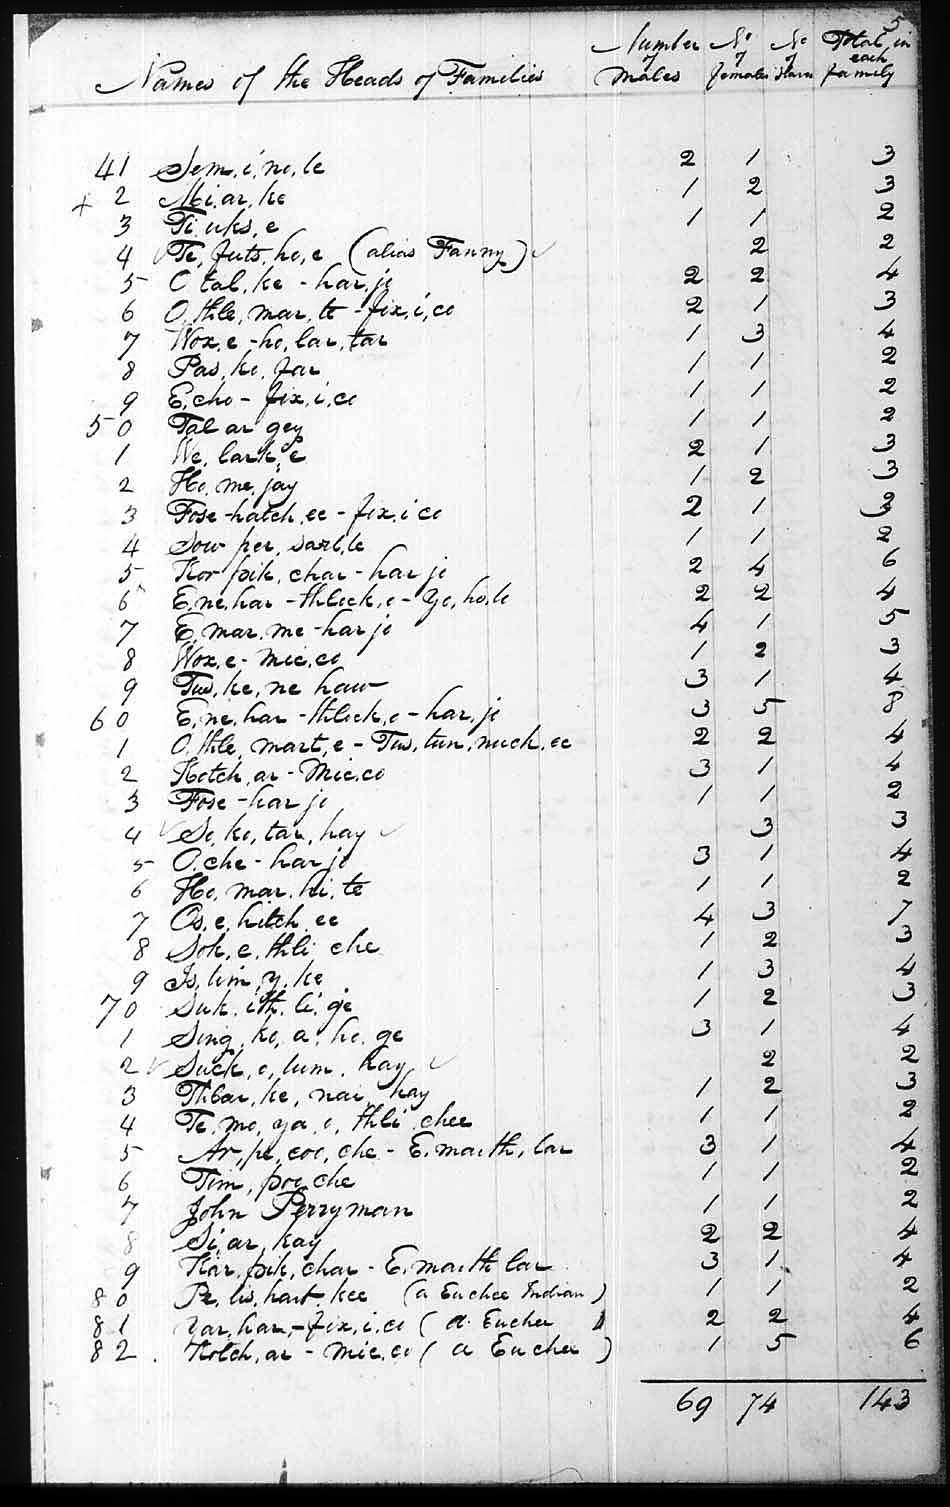 5
Number of Males No of females No of Slaves Total in each family
Names of the Heads of Families
41 Sem,i,no,le 2 1 3
+ 2 Mi,ar,ke 1 2 3
3 Ti,uks,e 1 1 2
4 Te,futs,ho,e (alias Fanny) 2 2
5 O tal,ke - har,jo 2 2 4
6 O,thle,mar,te - fix,i,co 2 1 3
7 Wox,e - ho,lar,tar 1 3 4
8 Pas,ko,far 1 1 2
9 E,cho - fix,i,co 1 1 2
50 Tal ar gey 1 1 2
1 We,lark,e 2 1 3
2 Ho,me,jay 1 2 3
3 Fose-hatch,ee - fix,i co 2 1 3
4 Sow per, 1 1 2
5 Kor pik,char - har jo 2 4 6
6 E,ne,har - thlock,o - Yo,ho,lo 2 2 4
7 E,mar,me - har jo 4 1 5
8 Wox,e - Mic,co 1 2 3
9 Tus,ke,ne haw 3 1 4
60 E,ne,har - thlock,o - har,jo 3 5 8
1 O,thle,mart,e - Tus,tun,nuck,ee 2 2 4
2 Kotch,ar - Mic,co 3 1 4
3 Fose - har jo 1 1 2
4 So,ko,tar,hay 3 3
5 O,che - har jo 3 1 4
6 Ho,mar,hi,te 1 1 2
7 Os,e,hitch,ee 4 3 7
8 Soh,e,thli che 1 2 3
9 Is,tim,y,ke 1 3 4
70 Suk,ith,li,ge 1 2 3
1 Sing,ko,a,ho,ge 3 1 4
2 Suck,o,lum,kay 2 2
3 Thlar,ke,nai,hay 1 2 3
4 Te,mo,ya,o,thli chee 1 1 2
5 Ar,pi,coo,che - E,marth,lar 3 1 4
6 Tim,poo,che 1 1 2
7 John Perryman 1 1 2
8 Si,ar,kay 2 2 4
9 Kar,pik,char - E,marth lar 3 1 4
80 Pe,lis,hart,kee (a Euchee Indian) 1 1 2
81 Yar,har,-fix,i,co (a Euchee ") 2 2 4
82. Kotch,ar - mic,co (a Euchee ) 1 5 6
69 74 143